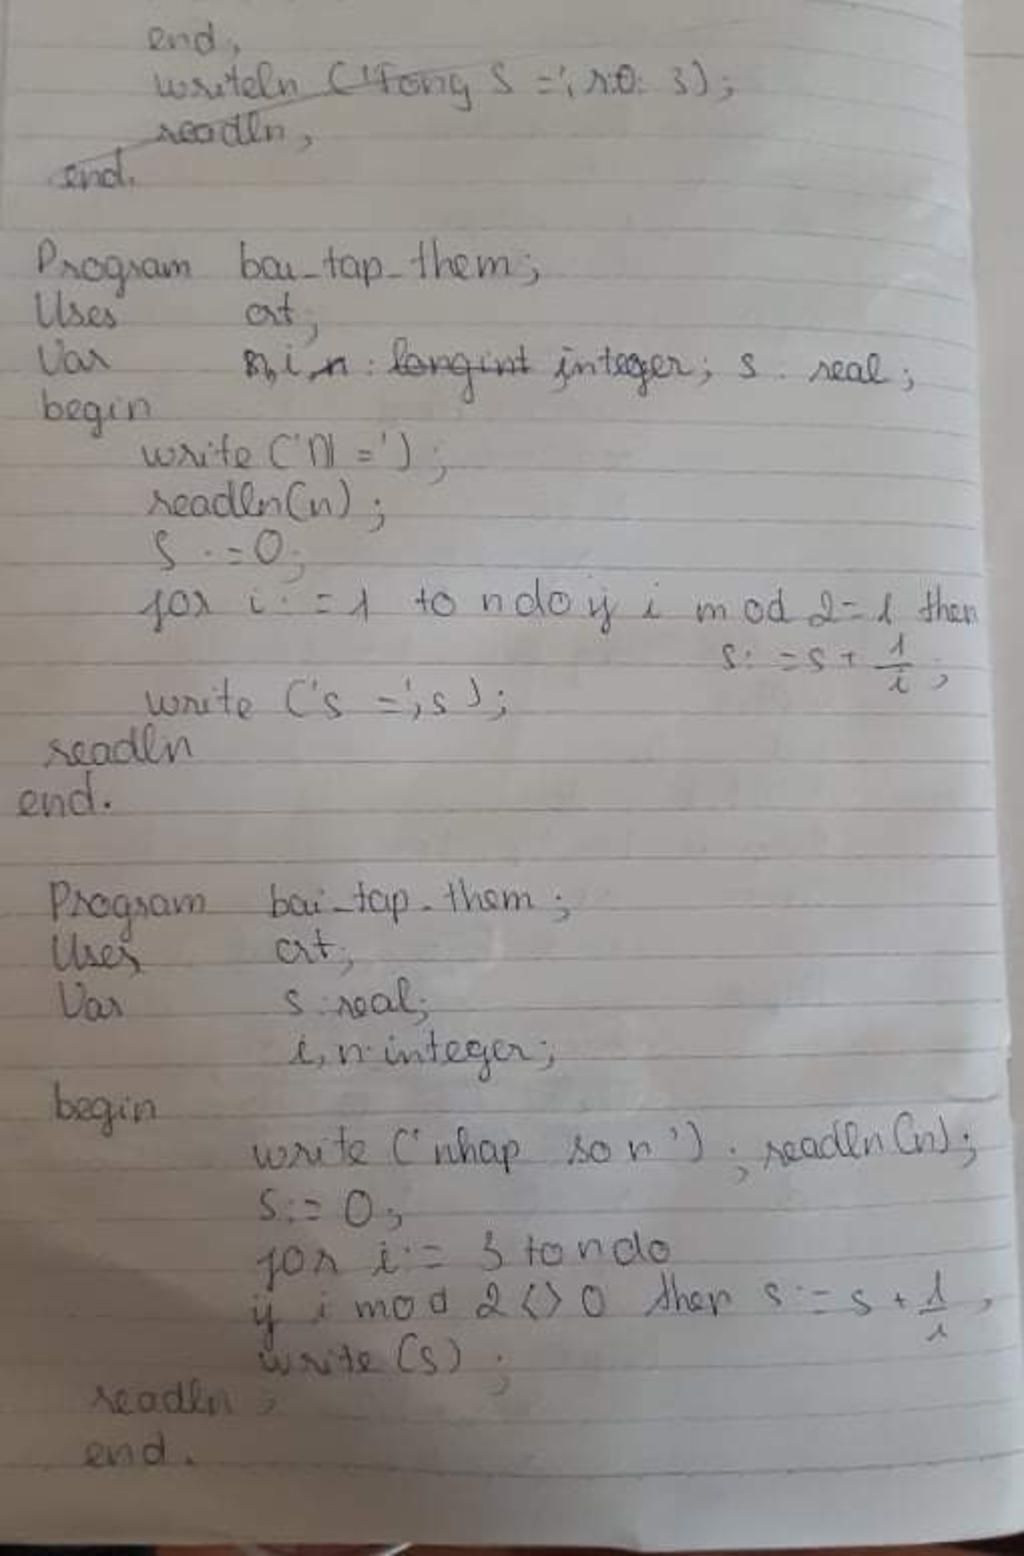 end,
writeln ('Tong S =', s:0: 3);
readln,
end.
Program bai_tap_them;
Uses crt;
Var i, n : longint integer; s : real;
begin
write ('N =');
readln(n);
S := 0;
for i := 1 to n do if i mod 2 = 1 then
s := s + 1/i;
write ('s =', s);
readln
end.
Program bai_tap_them;
Uses crt;
Var s: real;
i, n: integer;
begin
write ('nhap so n'); readln(n);
S := 0;
for i := 3 to n do
if i mod 2 <> 0 then s := s + 1/i,
write (s);
readln;
end.